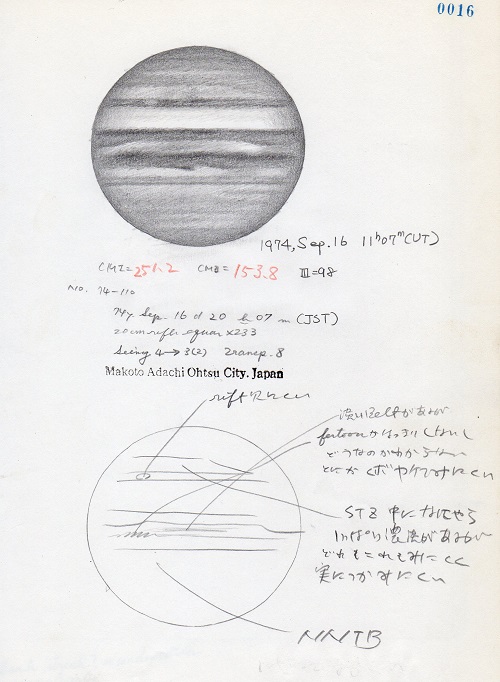 0016
1974, Sep. 16 11h07m(UT)
CMI=251.2 CMII=153.8 III=98
No. 74-110
74y Sep. 16 d 20 h 07 m (JST)
20cm refle equar x233
Seeing 4→3(2) Transp. 8
Makoto Adachi Ohtsu City. Japan
濃いBeltがあるが
はっきりしないし
どうなのかわからない
とにかくボヤケてみにくい
STZ 中になにやら
濃淡があるが
どれもこれもみにくく
実につかみにくい
NNTB